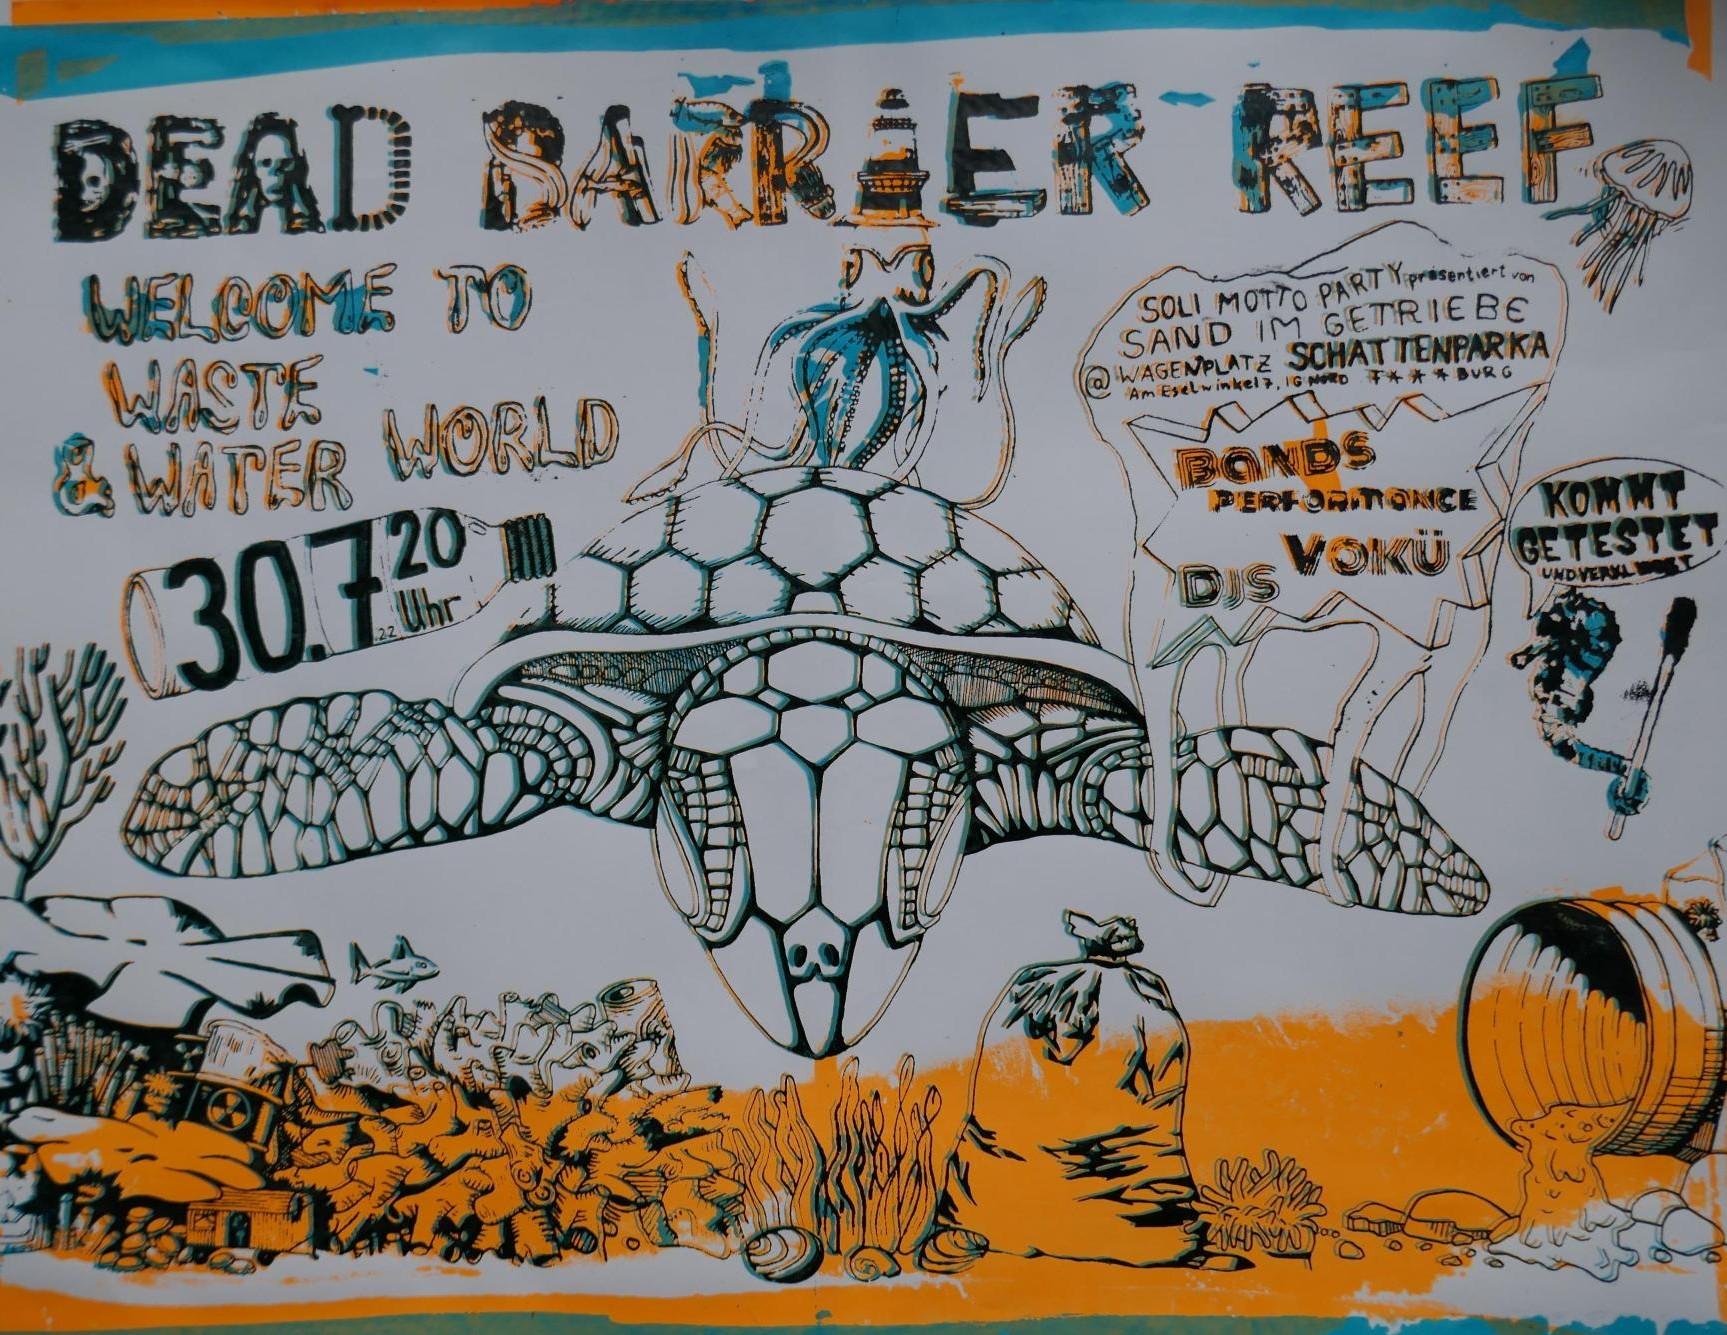 DEAD BARRIER REEF
WELCOME TO
WASTE
& WATER WORLD
30.7.22 20 Uhr
SOLI MOTTO PARTY präsentiert von
SAND IM GETRIEBE
@ WAGENPLATZ SCHATTENPARKA
Am Eselwinkel 7, IG NORD F***BURG
BANDS
PERFORMANCE
DJS VOKÜ
KOMMT
GETESTET
UND